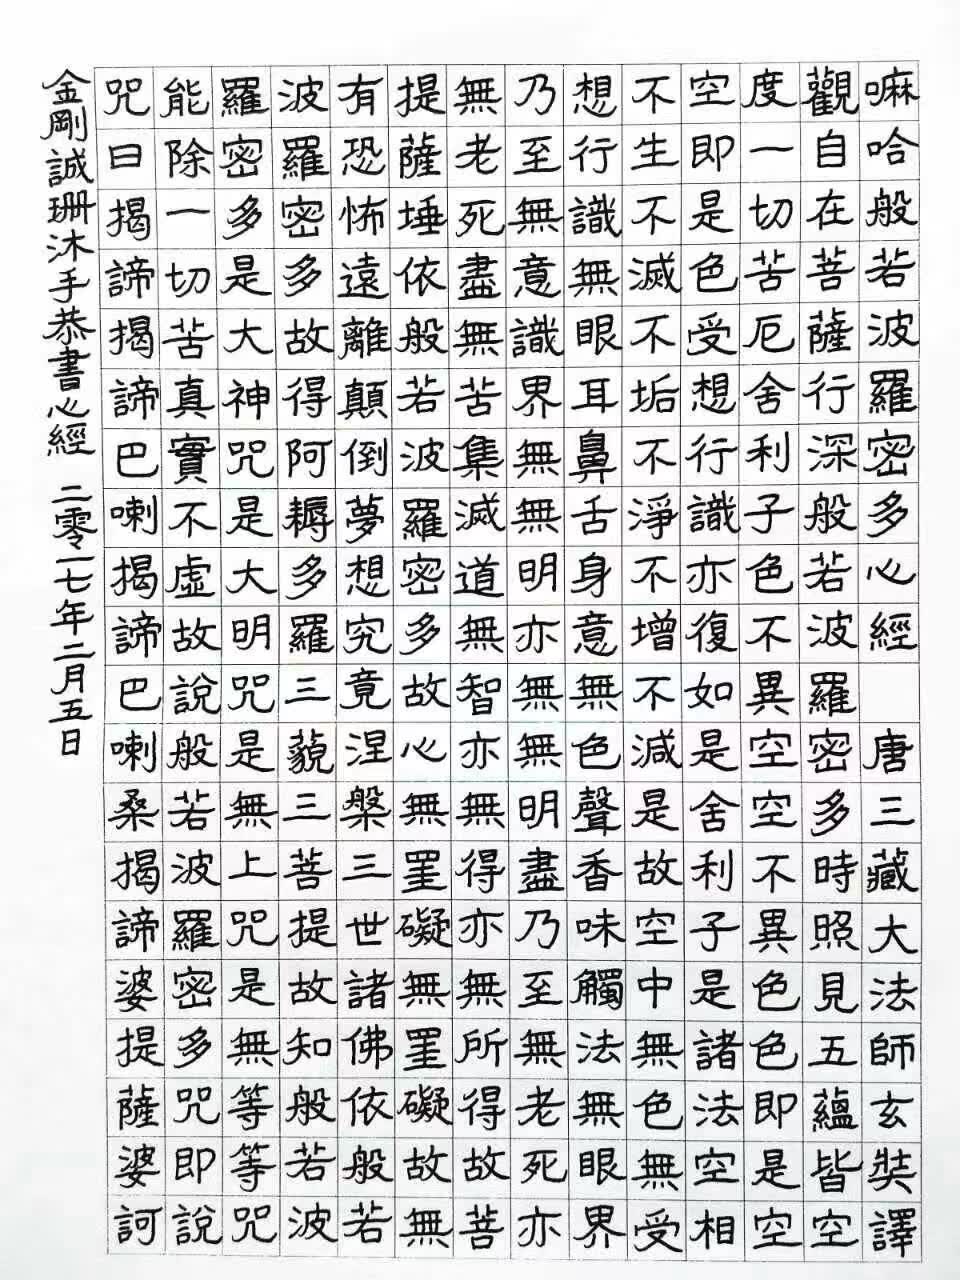 嘛哈般若波羅密多心經 唐三藏大法師玄奘譯
觀自在菩薩行深般若波羅密多時照見五蘊皆空
度一切苦厄舍利子色不異空空不異色色即是空
空即是色受想行識亦復如是舍利子是諸法空相
不生不滅不垢不淨不增不減是故空中無色無受
想行識無眼耳鼻舌身意無色聲香味觸法無眼界
乃至無意識界無無明亦無無明盡乃至無老死亦
無老死盡無苦集滅道無智亦無得亦無所得故菩
提薩埵依般若波羅密多故心無罣礙無罣礙故無
有恐怖遠離顛倒夢想究竟涅槃三世諸佛依般若
波羅密多故得阿耨多羅三藐三菩提故知般若波
羅密多是大神咒是大明咒是無上咒是無等等咒
能除一切苦真實不虛故說般若波羅密多咒即說
咒曰揭諦揭諦巴喇揭諦巴喇桑揭諦婆提薩婆訶
金剛誠珊沐手恭書心經 二零一七年二月五日